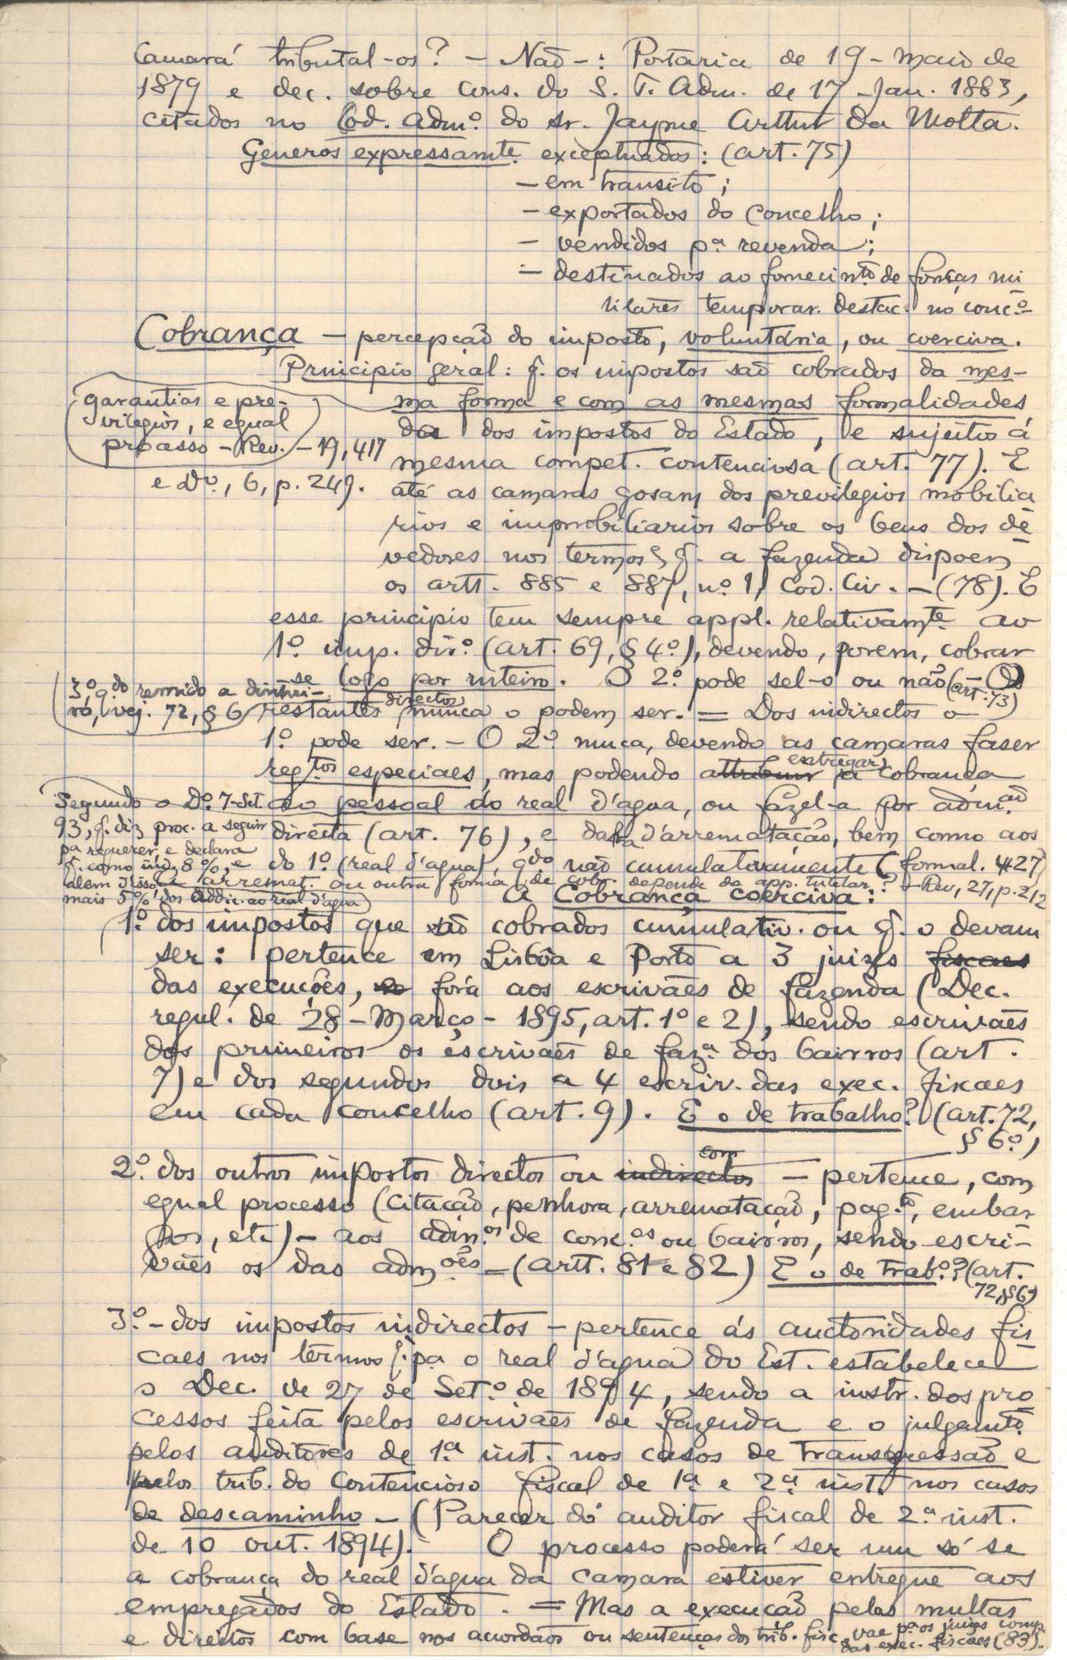 Camará tributal-os? - Não -: Portaria de 19 - maio de
1879 e dec. sobre cons. do S. T. Adm. de 17 Jan. 1883,
citados no Cod. Admº. do sr. Jayme Arthur da Motta.
Generos expressamte. exceptuados: (art. 75)
- em transito;
- exportados do concelho;
- vendidos pª revenda;
- destinados ao fornecimto de forças mi
litares temporar. destac. no concº.
Cobrança - percepção do imposto, voluntária, ou coerciva.
Principio geral: q. os impostos são cobrados da mes-
ma forma e com as mesmas formalidades
dos impostos do Estado, e sujeito á
mesma compet. contenciosa (art. 77). E
até as camaras gosam dos previlegios mobilia
rios e immobiliarios sobre os bens dos de
vedores nos termos q. a fazenda dispoem
os artt. 885 e 887, nº 1, Cod. Civ. - (78). E
garantias e pre-
vilegios, e egual
processo - Rev. - 19, 417
e Dº, 6, p. 249.
esse principio tem sempre appl. relativamte ao
1º imp. dirº. (art. 69, § 4º), devendo, porem, cobrar
-se logo por roteiro. O 2º pode sel-o ou não (art. 73) - Os
restantes directos nunca o podem ser. = Dos indirectos o
3º, qdo remido a dinhei-
ro, vej. 72, § 6
1º pode ser. - O 2º nunca, devendo as camaras faser
regtos especiaes, mas podendo attribuir entregar a cobrança
ao pessoal do real d'agua, ou fazel-a por admão
directa (art. 76), e dala d'arrematação, bem como aos
do 1º (real d'agua) qdo não cumulativamente (formal. 427)
Segundo o Dº. 7-Set.
93, q. diz proc. a seguir
pª requerer e declara
q. como ind. 8%, e
alem d'isso
mais 3% dos addic. ao real d'agua
A arremat. ou outra forma de cobr. depende da app. tutelar? - Rev, 27, p. 212
A Cobrança coerciva:
1º. dos impostos que são cobrados cumulativ. ou q. o devam
ser: pertence em Lisbôa e Porto a 3 juizes fiscaes
das execuções, fóra aos escrivães de fazenda (Dec.
regul. de 28 - Março - 1895, art. 1º e 2), sendo escrivães
dos primeiros os escrivães de fazª dos bairros (art.
7) e dos segundos dois a 4 escriv. das exec. fiscaes
em cada concelho (art. 9). E o de trabalho? (art. 72,
§ 6º)
2º. dos outros impostos directos ou indirectos com - pertence, com
egual processo (citação, penhora, arrematação, pagto, embar
gos, etc) - aos admºs de concºs ou bairros, sendo escri-
vães os das admões - (artt. 81 e 82) E o de trabº.? (art.
72, § 6)
3º. - dos impostos indirectos - pertence ás auctoridades fis
caes nos termos q. pª o real d'agua do Est. estabelece
o Dec. de 27 de Setº de 1894, sendo a instr. dos pro
cessos feita pelos escrivães de fazenda e o julgamto
pelos auditores de 1ª inst. nos casos de transgressão e
pelos trib. do contencioso fiscal de 1ª e 2ª inst. nos casos
de descaminho - (Parecer do auditor fiscal de 2ª inst.
de 10 out. 1894). O processo poderá ser um só se
a cobrança do real d'agua da camara estiver entregue aos
empregados do Estado. = Mas a execução pelas multas
e direitos com base nos acordãos ou sentenças dos trib. fisc. vae pª os juizes comp.
das exec. fiscaes (83).